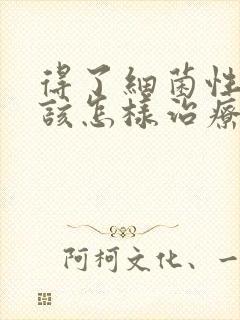 得了細菌性
該怎樣治療
阿柯文化、一